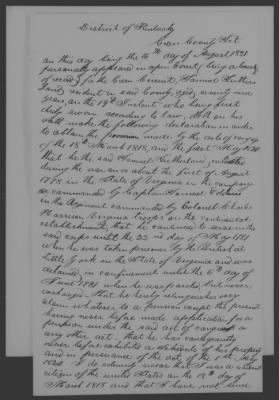 District of Kentucky
Green County Sct
on this day being the 16th day of August 1821
personally appeared in open Court being a Court
of record for the Green Circuit, Samuel
resident in said County, aged ninety nine
years, on the 19th Instant who being first
duly sworn according to law, doth on his
oath make the following declaration in order
to obtain the provision made by the acts of congress
of the 18th March 1818, and the first May 1820
that he the said Samuel enlisted
during the war on about the first of August
in the State of Virginia in the company
commanded by Captain
in the Regiment commanded by Colonel Charles
Harrison Virginia troops on the continental
establishment, that he continued to serve in the
said corps until the 22nd day of May 1781
when he was taken prisoner by the British at
Little York in the State of Virginia and was
detained in confinement until the 6th day of
June 1781 when he was paroled but never
exchanged. That he hereby relinquishes every
claim whatever to a pension except the present
having never before made application for a
pension under the said act of congress or
any other act, that he has consequently
never before exhibited a schedule of his property
and in pursuance of the act of the 1st May
1820 I do solemnly swear that I was a resident
citizen of the united States on the 18th day of
March 1818 and that I have not since